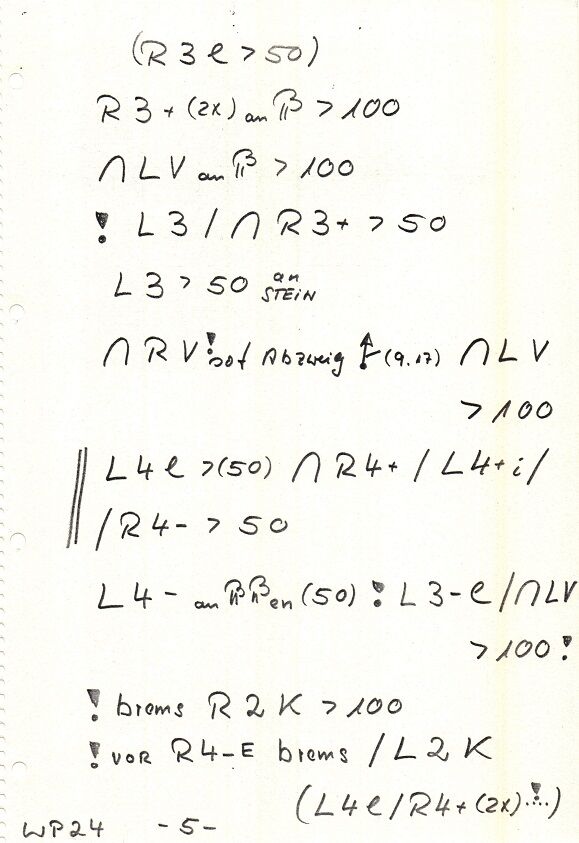 (R 3 e > 50)
R 3 + (2x) an B > 100
∩ L V an B > 100
! L 3 / ∩ R 3 + > 50
L 3 > 50 an STEIN
∩ R V ! sof Abzweig (9.17) ∩ L V
> 100
L 4 e > (50) ∩ R 4 + / L 4 + i /
/ R 4 - > 50
L 4 - an BBen (50) ! L 3 - e / ∩ L V
> 100 !
! brems R 2 K > 100
! VOR R 4 - E brems / L 2 K
(L 4 e / R 4 + (2x) ..!..)
WP24 - 5 -